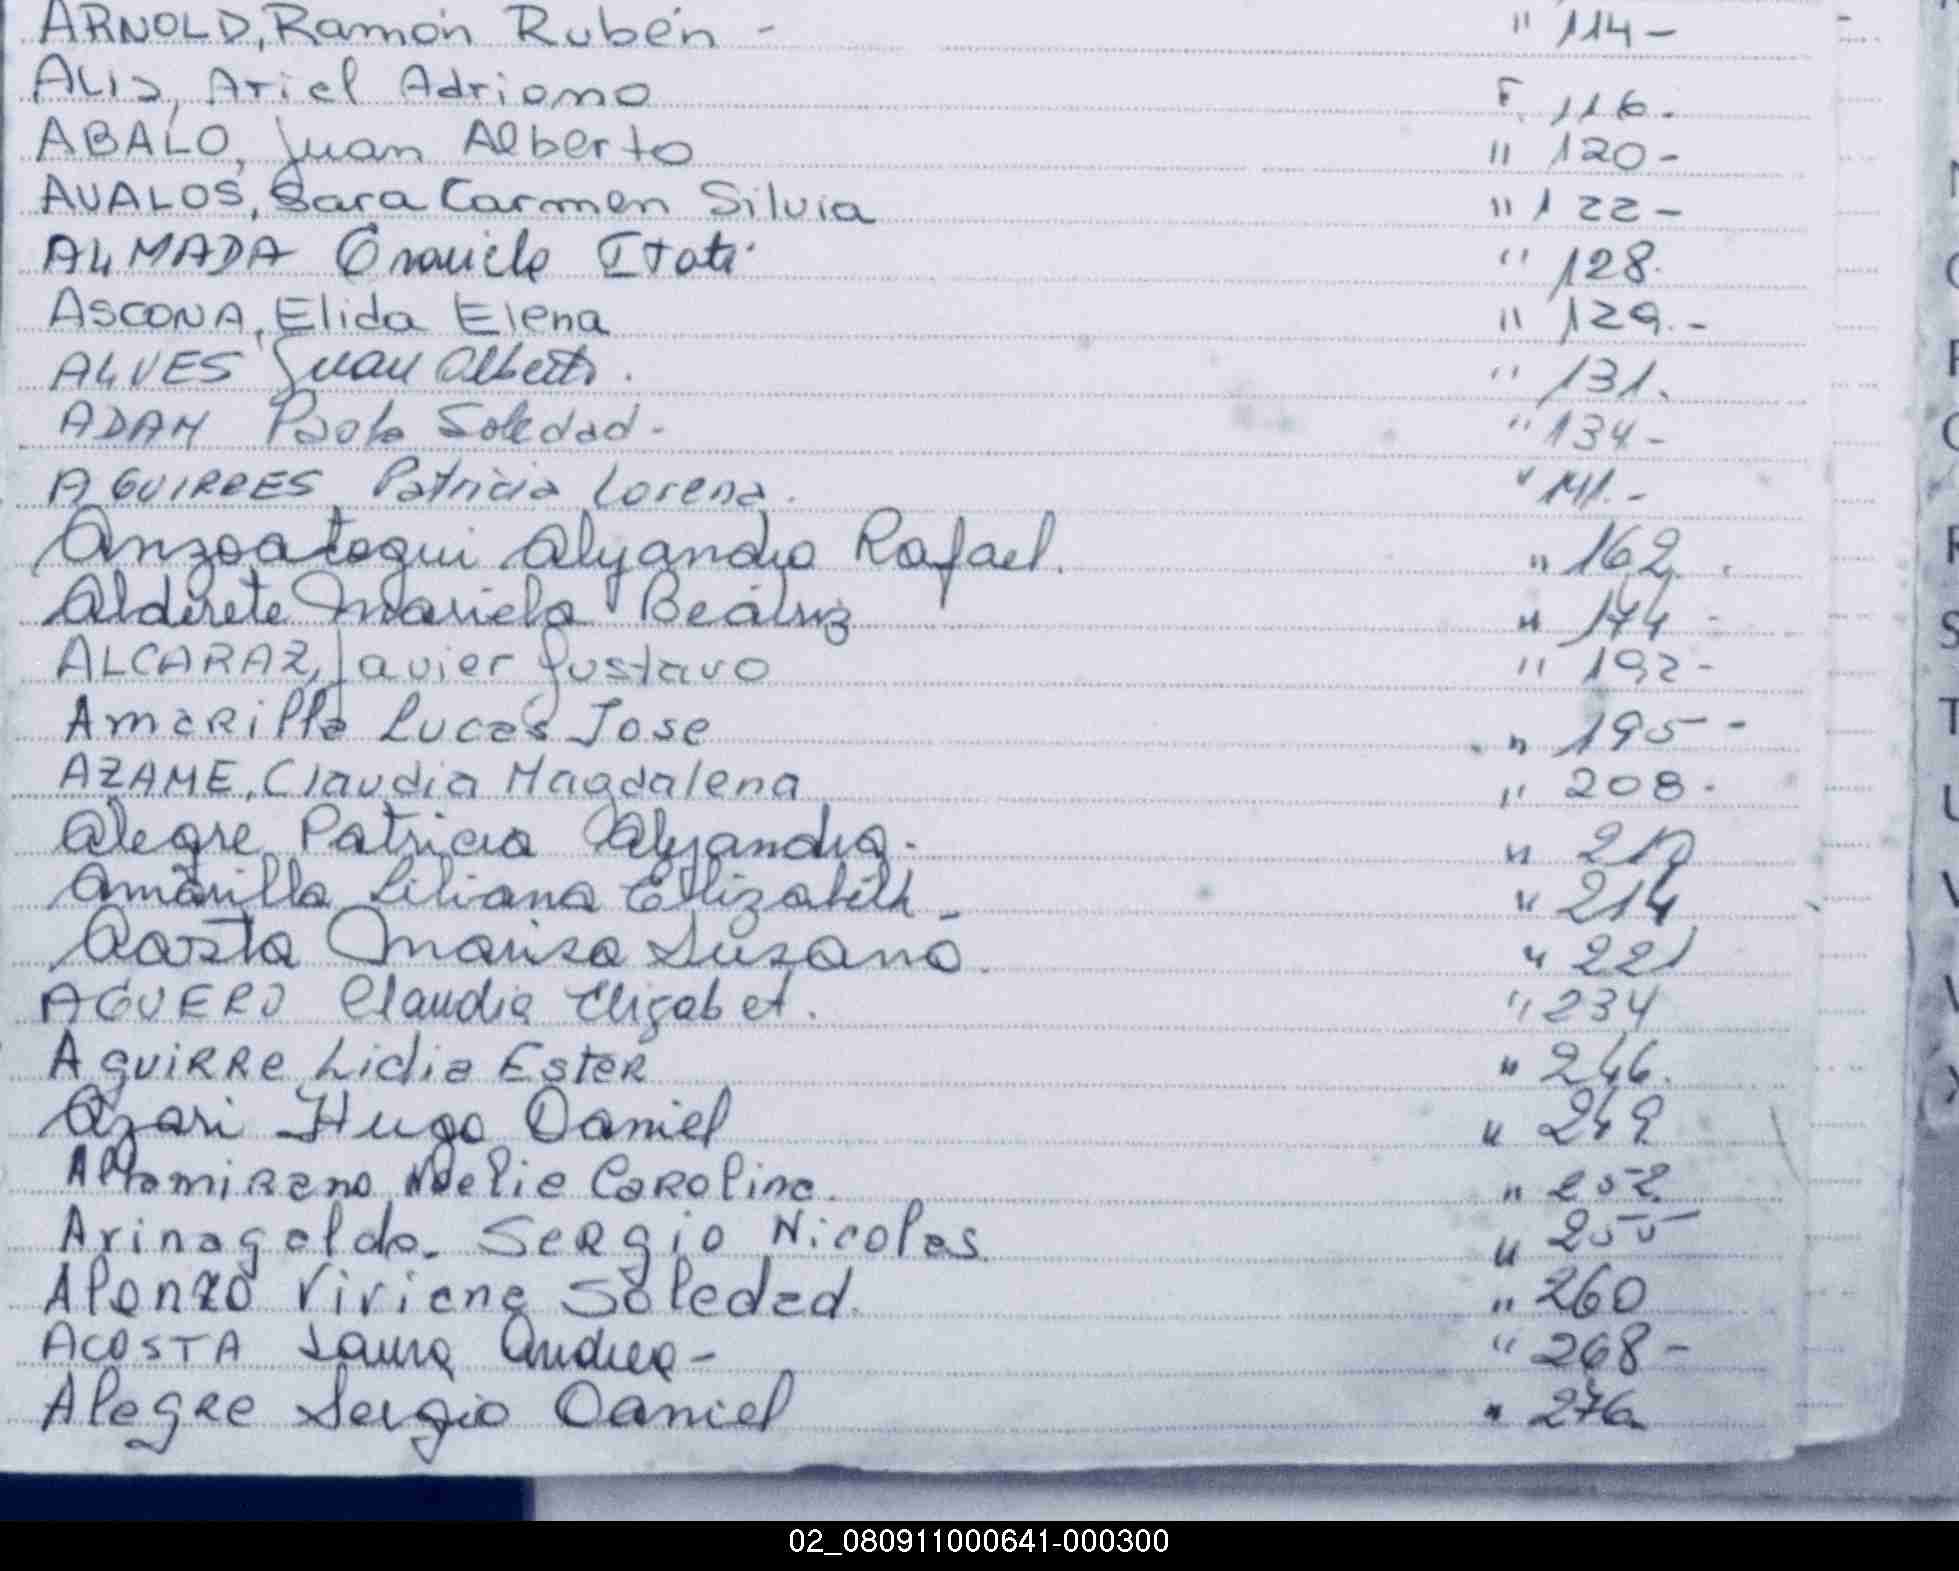 ARNOLD, Ramón Rubén - " 114 -
ALIS, Ariel Adriano F. 116.
ABALO, Juan Alberto " 120 -
AVALOS, Sara Carmen Silvia " 122 -
ALMADA Graciela Itati " 128.
ASCONA, Elida Elena " 129. -
ALVES Juan Alberto. " 131.
ADAM Paola Soledad - " 134 -
AGUIRRES Patricia Lorena. " 141. -
Anzoategui Alejandro Rafael. " 162.
Alderete Mariela Beatriz " 174 -
ALCARAZ, Javier Gustavo " 192 -
Amarilla Lucas Jose " 195 -
AZAME, Claudia Magdalena " 208 -
Alegre Patricia Alejandra. "
Amarilla Liliana Ellizabeth - " 214
Acosta Marisa Susana. " 221
AGUERO Claudia Elizabet. " 234
Aguirre Lidia Ester " 246.
Azari Hugo Daniel " 249
Altamirano Noelia Carolina. " 252
Arinagalda. Sergio Nicolas " 255 -
Alonzo Viviana Soledad. " 260
ACOSTA Laura Andrea - " 268 -
Alegre Sergio Daniel " 276.
N
R
S
T
U
V
02_080911000641-000300